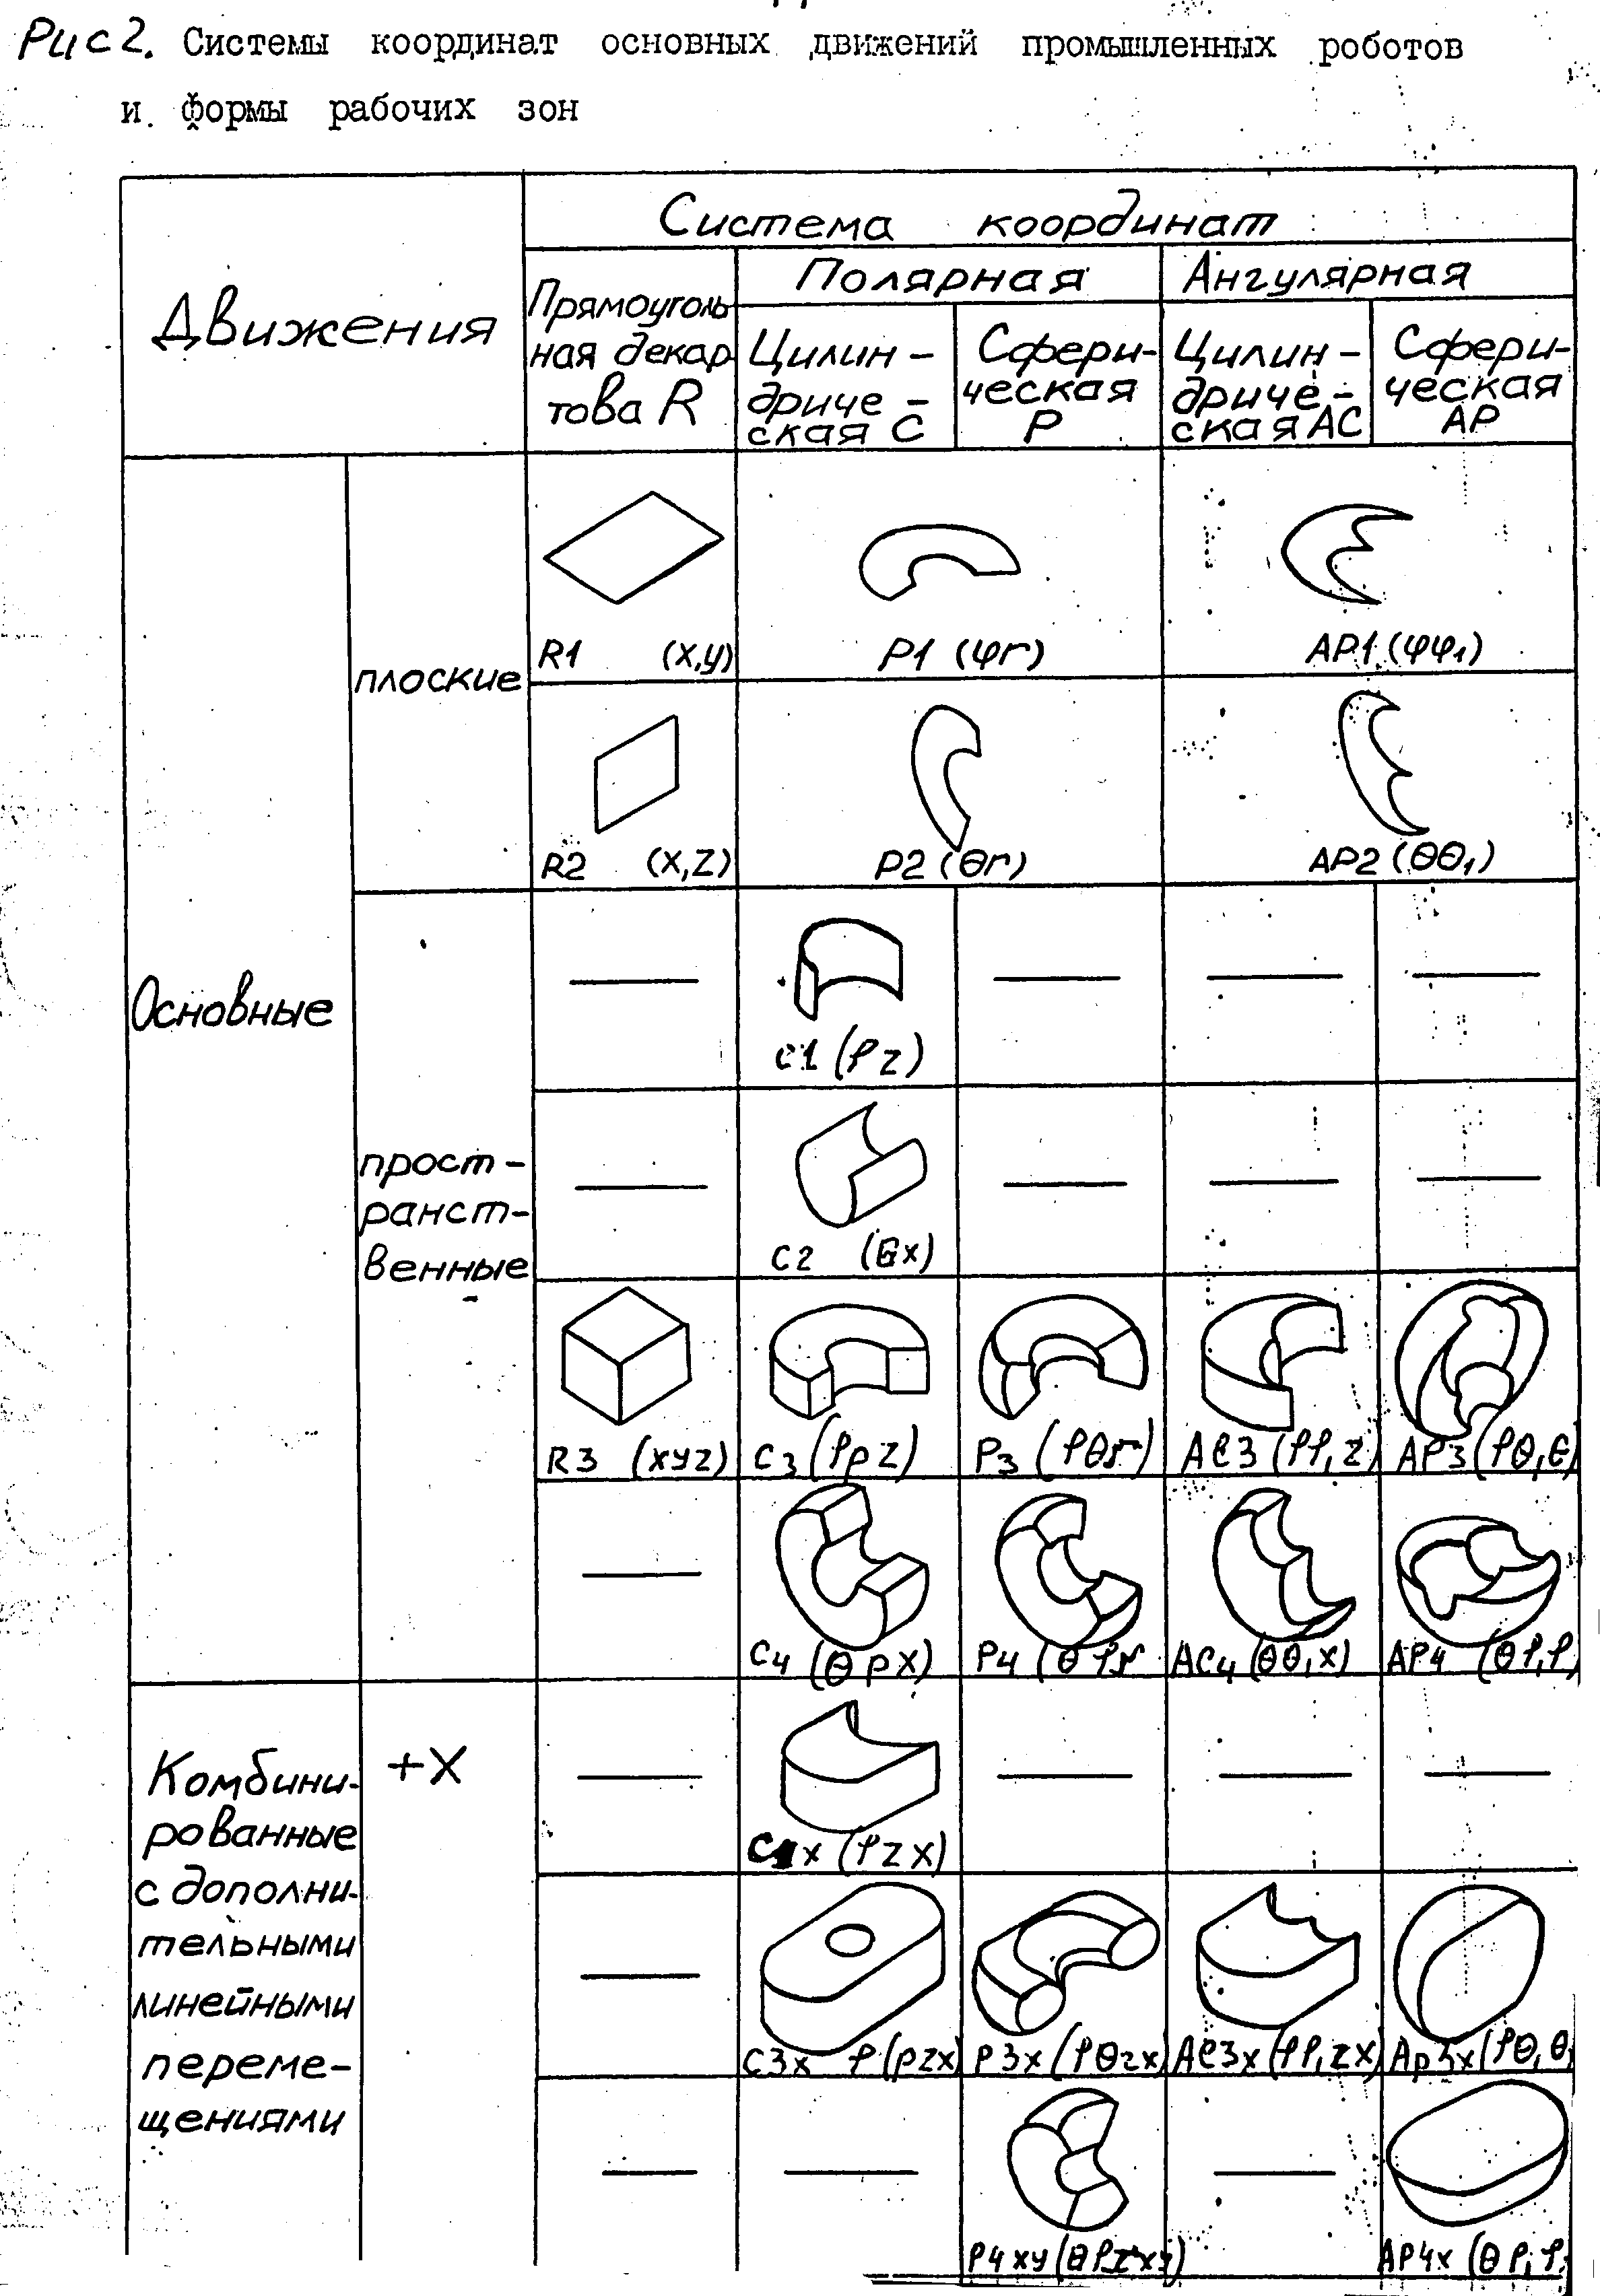 Рис 2. Системы координат основных движений промышленных роботов
и формы рабочих зон
Движения
Система координат
Прямоуголь
ная декар
това R
Полярная
Ангулярная
Цилин-
дриче-
ская С
Сфери-
ческая
Р
Цилин-
дриче-
ская АС
Сфери-
ческая
АР
Основные
плоские
R1 (x,y)
P1 (φr)
AP1 (φφ₁)
R2 (x,z)
P2 (θr)
AP2 (θθ₁)
прост-
ранст-
венные
C1 (φz)
C2 (θx)
R3 (xyz)
C3 (φρz)
P3 (φθr)
AC3 (φφ₁z)
AP3 (φθ₁θ)
C4 (θρx)
P4 (θφr
AC4 (θθ₁x)
AP4 (θφ₁φ)
Комбини-
рованные
с дополни-
тельными
линейными
переме-
щениями
+X
x (φzx)
C3x φ(ρzx)
P3x (φθrx)
AC3x (φφ₁zx)
AP3x (φθ₁θ₁
P4xy
AP4x (θφ₁φ